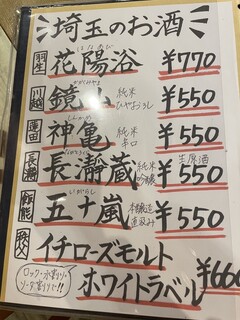 埼玉のお酒
羽生 花陽浴 ¥770
はなあび
川越 鏡山 純米 ひやおろし ¥550
かがみやま
蓮田 神亀 純米 辛口 ¥550
しんかめ
長瀞 長瀞蔵 純米吟醸 生原酒 ¥550
飯能 五十嵐 本醸造 直汲み ¥550
いがらし
秩父 イチローズモルト
ホワイトラベル ¥660
ロック・水割り・
ソーダ割りで!!